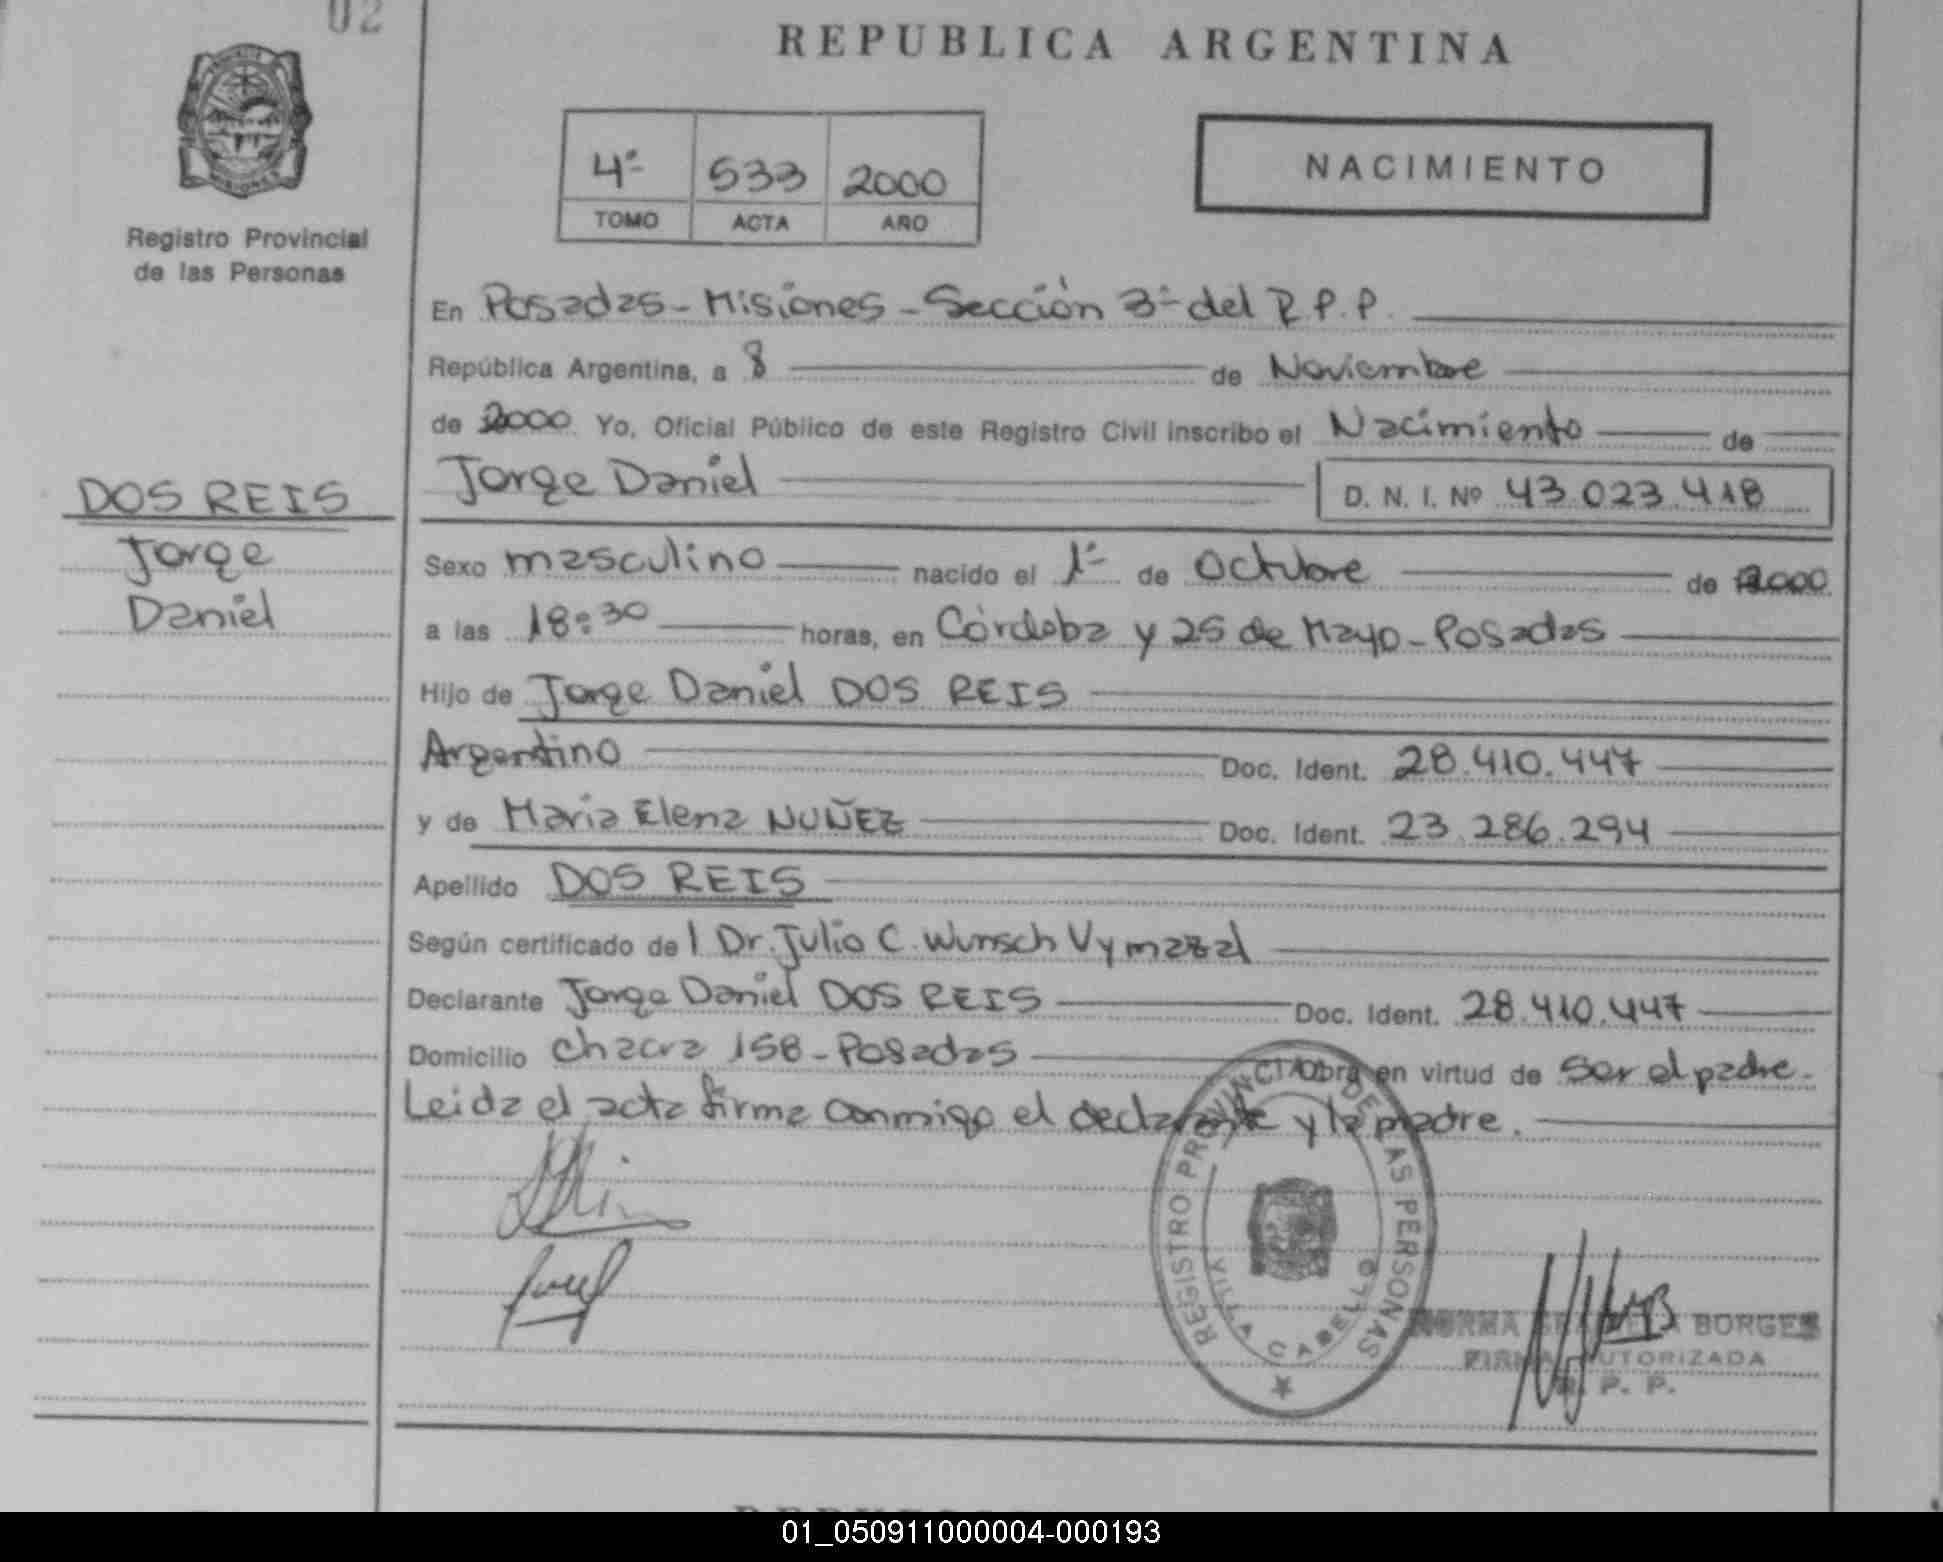 02
REPUBLICA ARGENTINA
4º 533 2000
TOMO ACTA AÑO
NACIMIENTO
MISIONES
Registro Provincial
de las Personas
En Posadas - Misiones - Sección 3º del R.P.P.
República Argentina, a 8 de Noviembre
de 2000. Yo, Oficial Público de este Registro Civil inscribo el Nacimiento de
Jorge Daniel D. N. I. Nº 43.023.418
DOS REIS
Jorge
Daniel
Sexo masculino nacido el 1º de Octubre de 2000.
a las 18:30 horas, en Córdoba y 25 de Mayo - Posadas
Hijo de Jorge Daniel DOS REIS
Argentino Doc. Ident. 28.410.447
y de Maria Elena NUÑEZ Doc. Ident. 23.286.294
Apellido DOS REIS
Según certificado del Dr. Julio C. Wunsch Vymazal
Declarante Jorge Daniel DOS REIS Doc. Ident. 28.410.447
Domicilio Chacra 158 - Posadas Obra en virtud de ser el padre.
Leida el acta firma conmigo el declarante y la madre.
REGISTRO PROVINCIAL DE LAS PERSONAS
VILLA CABELLO
NORMA BORGES
FIRMA AUTORIZADA
R. P. P.
01_050911000004-000193